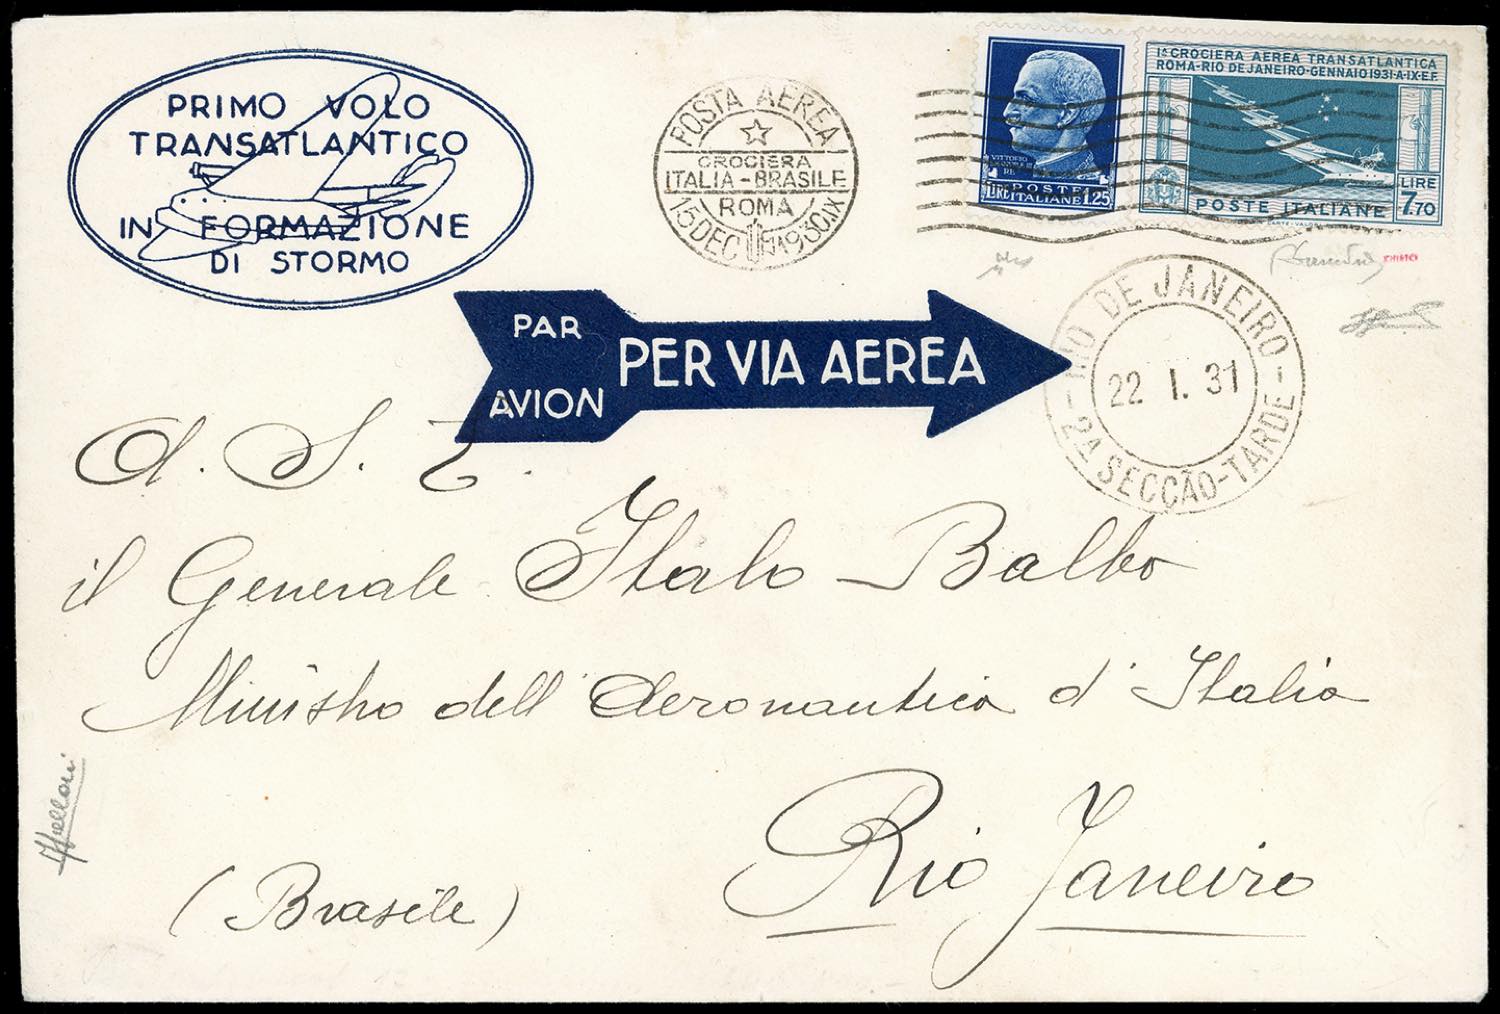 PRIMO VOLO
TRANSATLANTICO
IN FORMAZIONE
DI STORMO
POSTA AEREA
CROCIERA
ITALIA-BRASILE
ROMA
15 DEC 1930 IX
VITTORIO
RE
POSTE
LIRE ITALIANE 1.25
1ª CROCIERA AEREA TRANSATLANTICA
ROMA-RIO DE JANEIRO-GENNAIO 1931-A.IX-E.F.
LIRE
7.70
POSTE ITALIANE
RIO DE JANEIRO
22 I. 31
2ª SECCÃO-TARDE
PAR
AVION
PER VIA AEREA
A. S. E.
il Generale Italo Balbo
Ministro dell' Aeronautica d'Italia
Rio Janeiro
(Brasile)